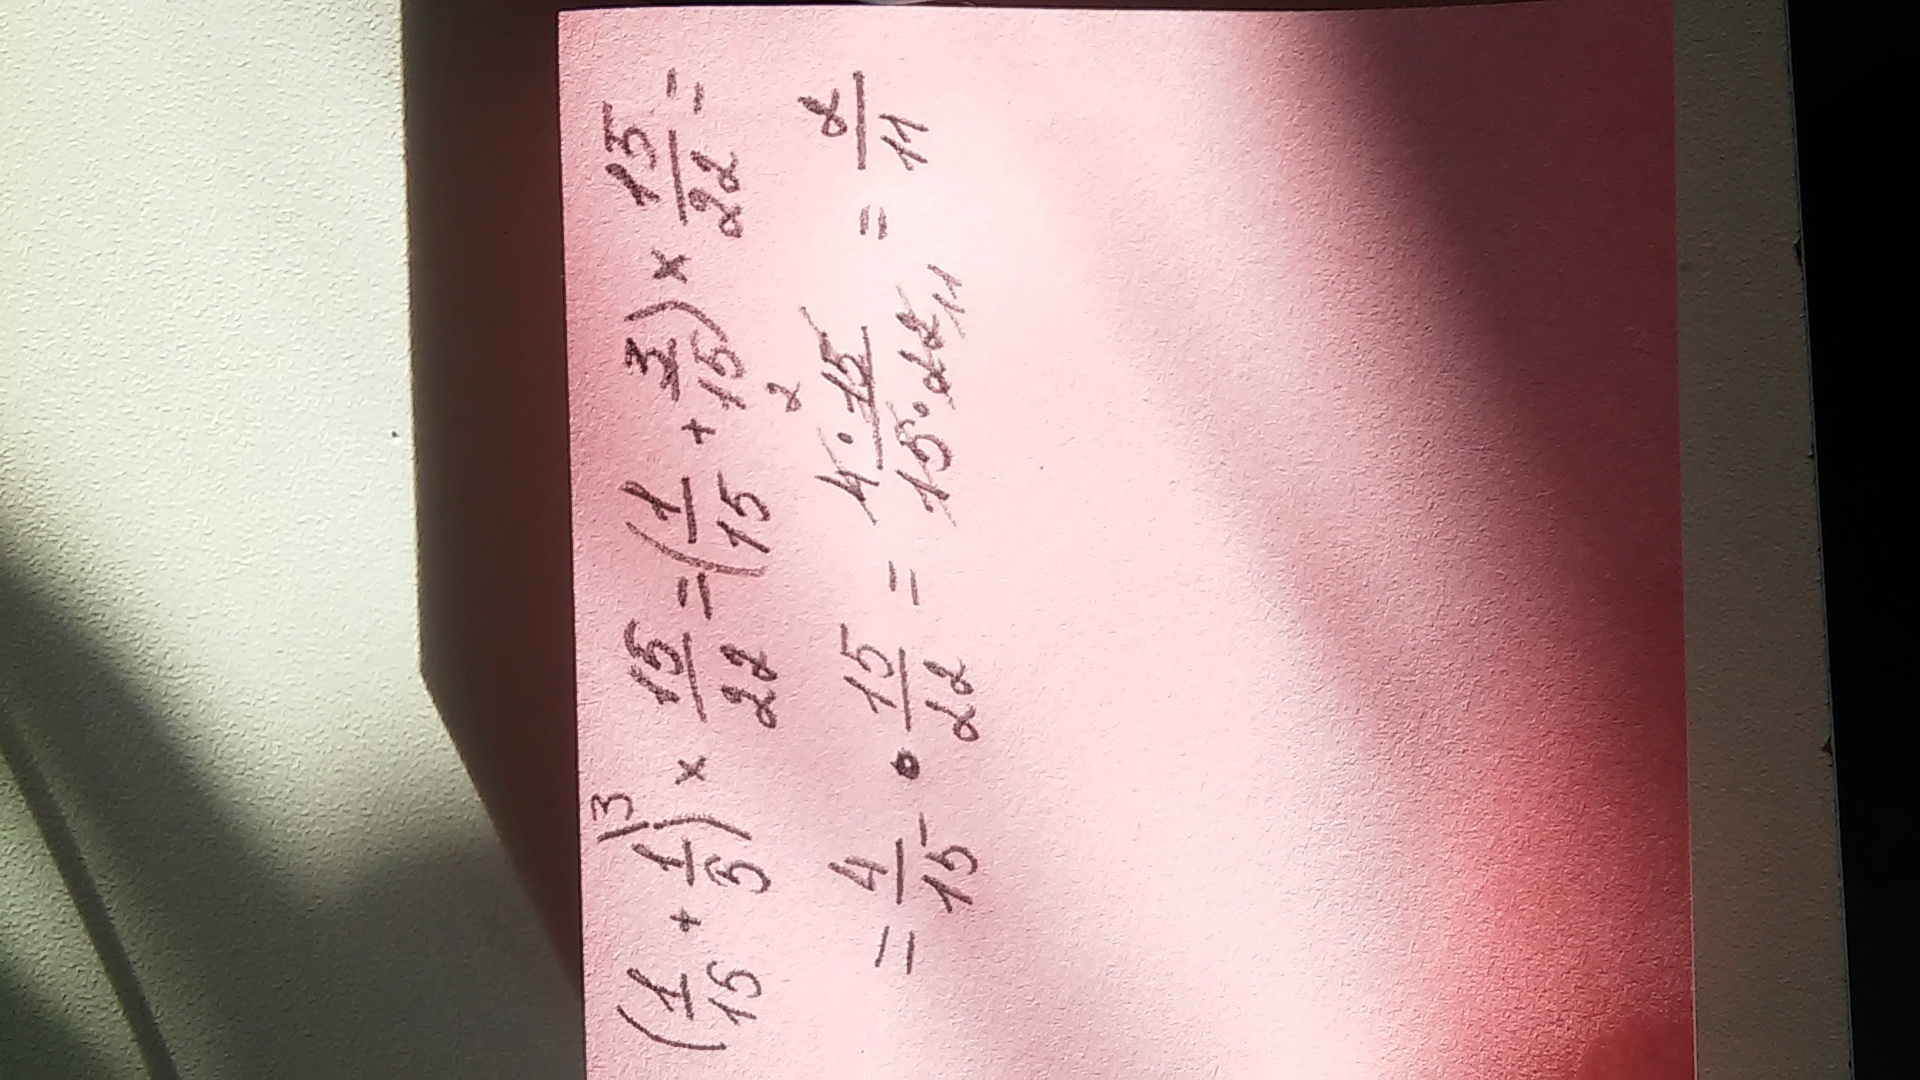 (1/15 + 1/5\3) × 15/22 = (1/15 + 3/15) × 15/22 =
= 4/15 • 15/22 = 4·15/15·22 2 11 = 2/11